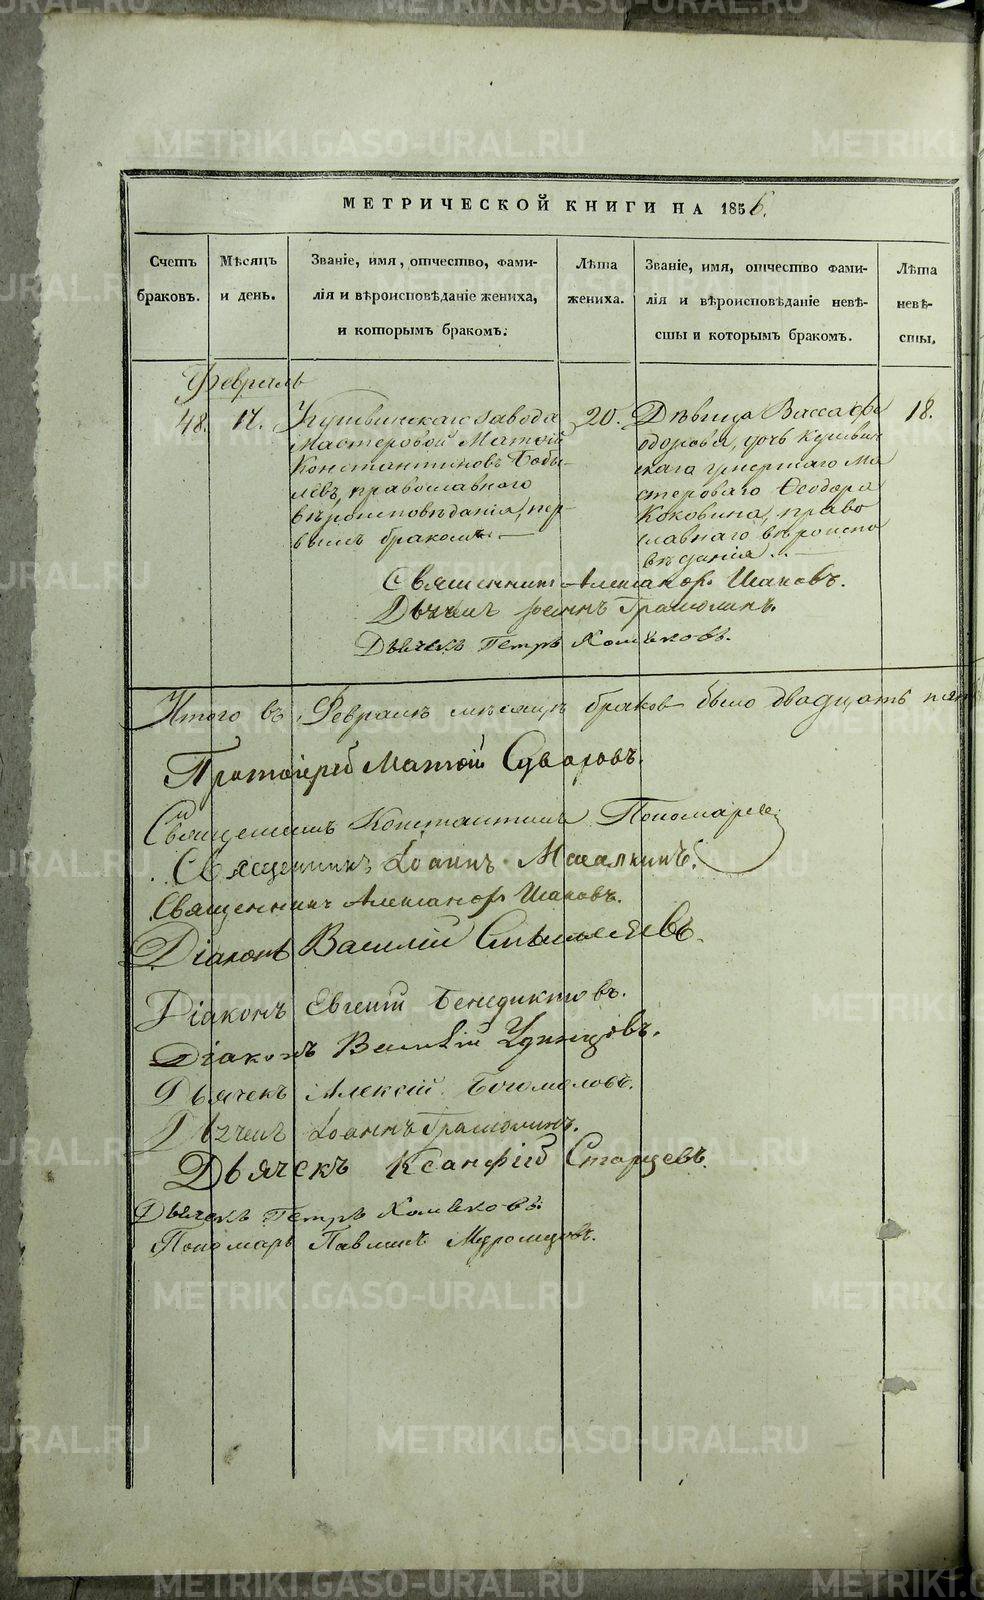 МЕТРИЧЕСКОЙ КНИГИ НА 1856.
Счетъ браковъ.
Мѣсяцъ и день.
Званіе, имя, отчество, фами-
лія и вѣроисповѣданіе жениха,
и которымъ бракомъ.
Лѣта жениха.
Званіе, имя, отчество фами-
лія и вѣроисповѣданіе невѣ-
сты и которымъ бракомъ.
Лѣта невѣ-
сты.
Февраль
48.
Кушвинскаго завода
мастеровой Матѳій
Константиновъ Бобы-
левъ, православнаго
вѣроисповѣданія, пер-
вымъ бракомъ.
20.
Дѣвица Васса Ѳе
одорова, дочь Кушвин
скаго умершаго ма
стероваго Ѳеодора
Коковина, право
славнаго вѣроиспо
вѣданія.
18.
Священникъ Александръ Шаховъ.
Дьячекъ Іоаннъ
Дьячекъ Петръ Хомяковъ.
Итого въ Февралѣ мѣсяцѣ браковъ было двадцать
Протоіерей Матѳій Суворовъ.
Священникъ Константинъ Пономаревъ
Священникъ Іоаннъ Масалкинъ.
Священникъ Александръ Шаховъ.
Діаконъ Василій
Діаконъ Евгеній Бенедиктовъ.
Діаконъ Василій Удинцовъ.
Дьячекъ Алексій Богомоловъ.
Дьячекъ Іоаннъ
Дьячекъ Ксанфій Старцевъ.
Дьячекъ Петръ Хомяковъ.
Пономарь Павлинъ Муромцовъ.
METRIKI.GASO-URAL.RU